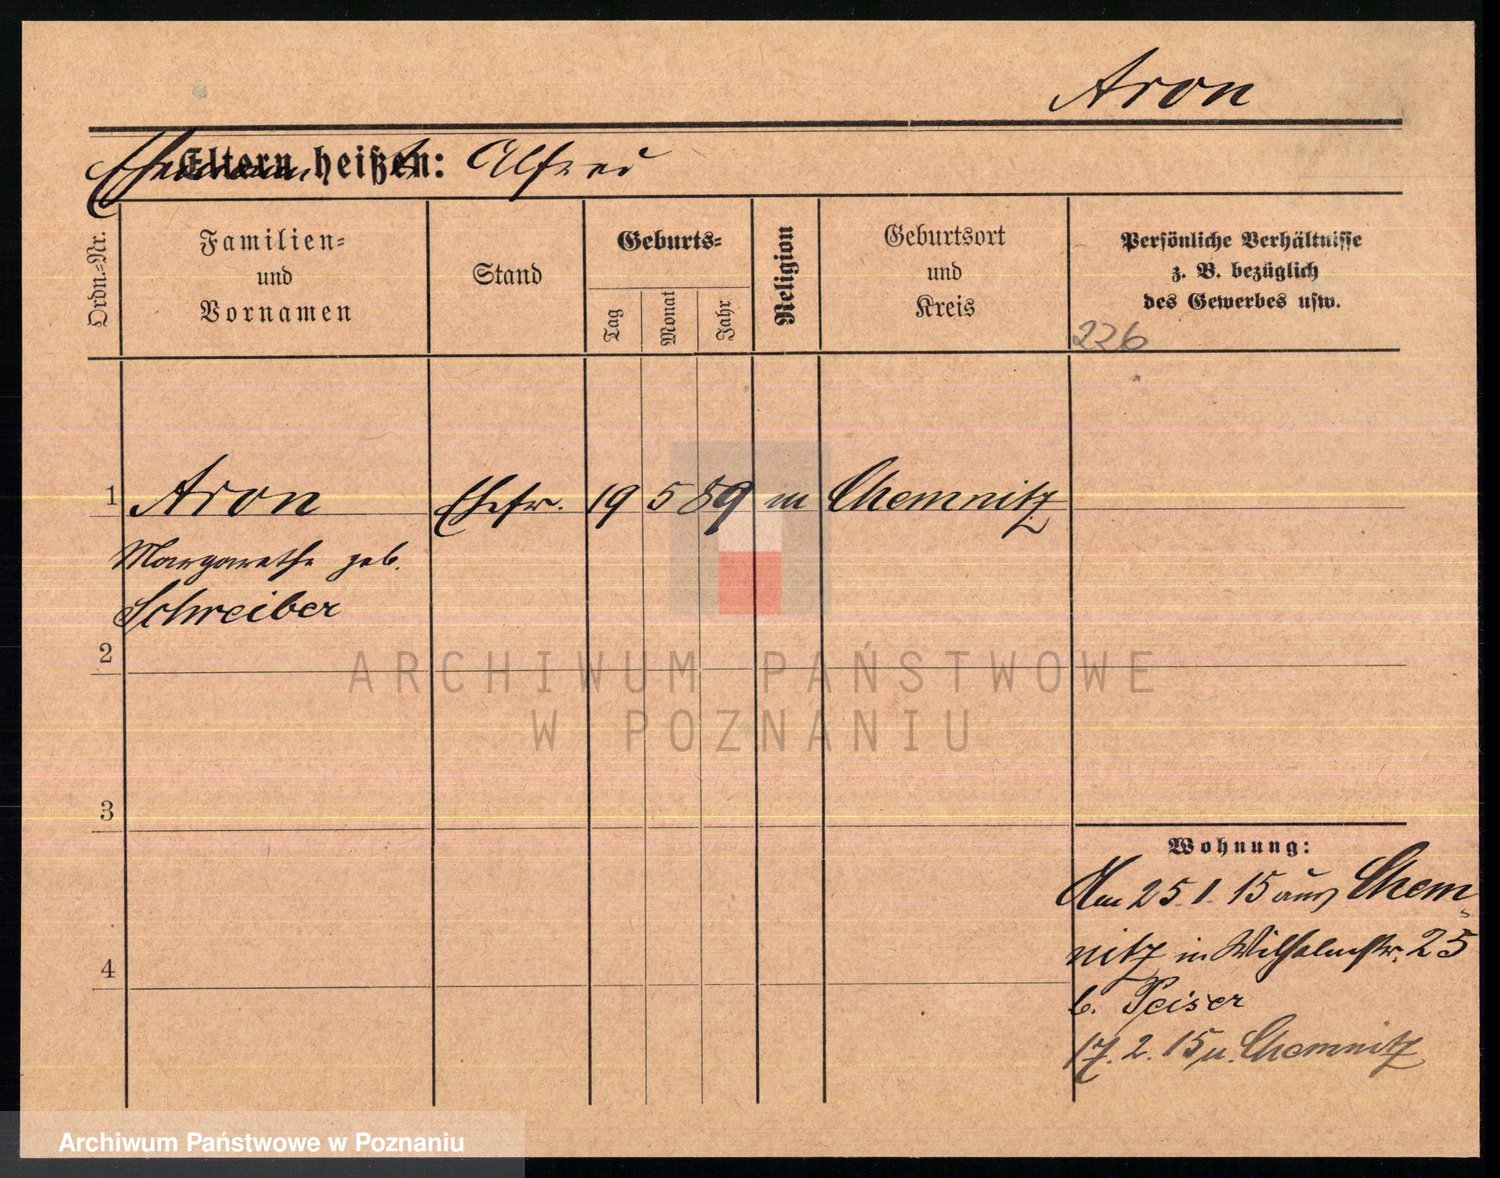 Aron
Eltern heißen: Alfred
Ehemann
Ordn.=Nr.
Familien=
und
Vornamen
Stand
Geburts=
Tag
Monat
Jahr
Religion
Geburtsort
und
Kreis
Persönliche Verhältnisse
z. B. bezüglich
des Gewerbes usw.
226
1 Aron Ehefr. 19 5 89 m Chemnitz
Margarethe geb.
Schreiber
2
ARCHIWUM PAŃSTWOWE
W POZNANIU
3
Wohnung:
Am 25. 1. 15 aus Chem-
nitz in Wilhelmstr. 25
b. Peiser
4
17. 2. 15 n. Chemnitz
Archiwum Państwowe w Poznaniu